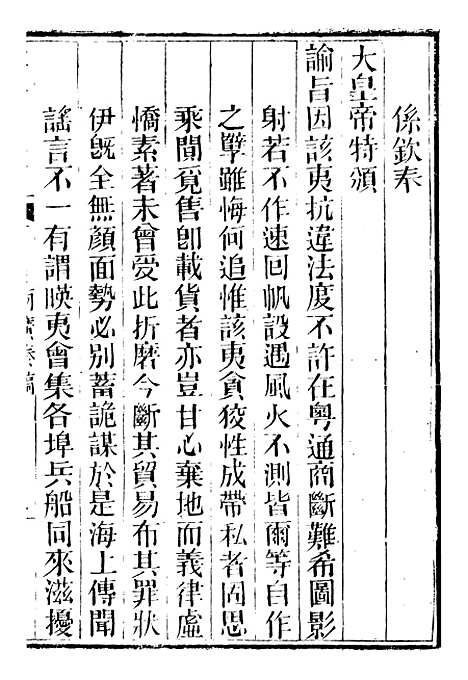 係欽奉
大皇帝特頒
諭旨因該夷抗違法度不許在粵通商斷難希圖影
射若不作速回帆設遇風火不測皆爾等自作
之孽雖悔何追惟該夷貪狡性成帶私者固思
乘間覓售卽載貨者亦豈甘心棄地而義律虛
憍素著未曾受此折磨今斷其貿易布其罪狀
伊旣全無顏面勢必別蓄詭謀於是海上傳聞
謠言不一有謂暎夷會集各埠兵船同來滋擾
奏稿